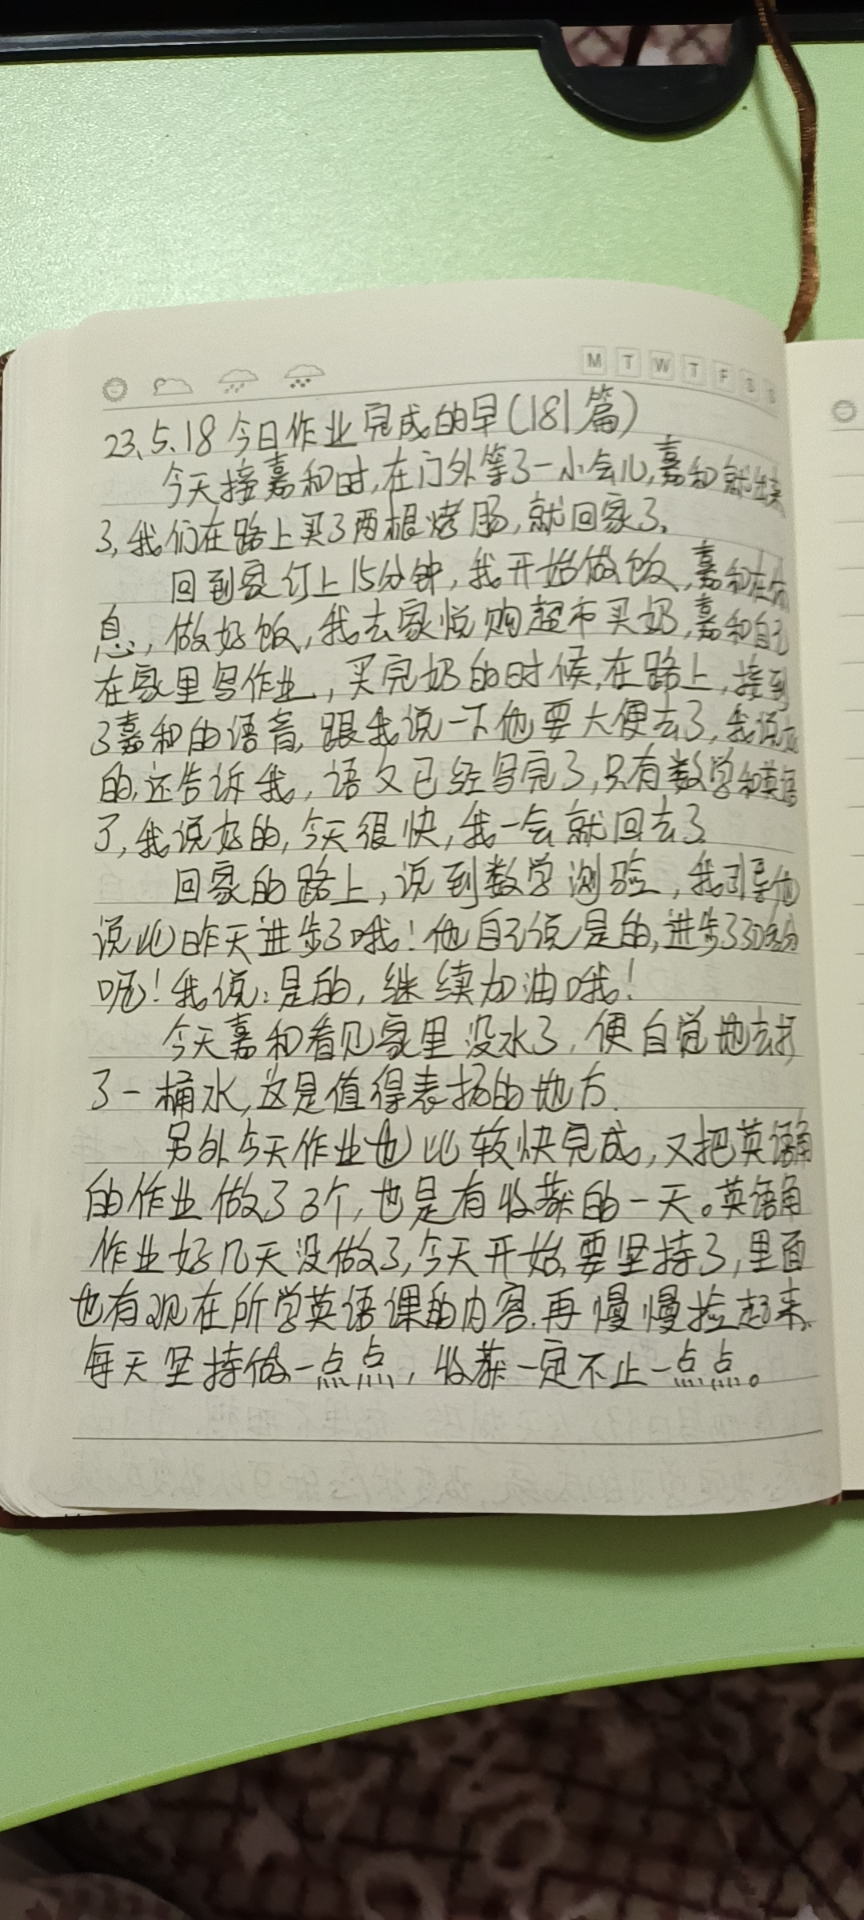 M T W T F S S
23.5.18 今日作业完成的早(181篇)
今天接嘉和时,在门外等了一小会儿,嘉和就出来
了,我们在路上买了两根烤肠,就回家了。
回到家订上15分钟,我开始做饭,嘉和在休
息,做好饭,我去家悦购超市买奶,嘉和自己
在家里写作业,买完奶的时候,在路上,接到
了嘉和的语音,跟我说一下他要大便去了,我说好
的,还告诉我,语文已经写完了,只有数学和英语
了,我说好的,今天很快,我一会就回去了
回家的路上,说到数学测验,我引导他
说比昨天进步了哦!他自己说是的,进步了30多分
呢!我说:是的,继续加油哦!
今天嘉和看见家里没水了,便自觉地去打
了一桶水,这是值得表扬的地方.
另外今天作业也比较快完成,又把英语角
的作业做了3个,也是有收获的一天。英语角
作业好几天没做了,今天开始,要坚持了,里面
也有现在所学英语课的内容.再慢慢捡起来,
每天坚持做一点点,收获一定不止一点点。